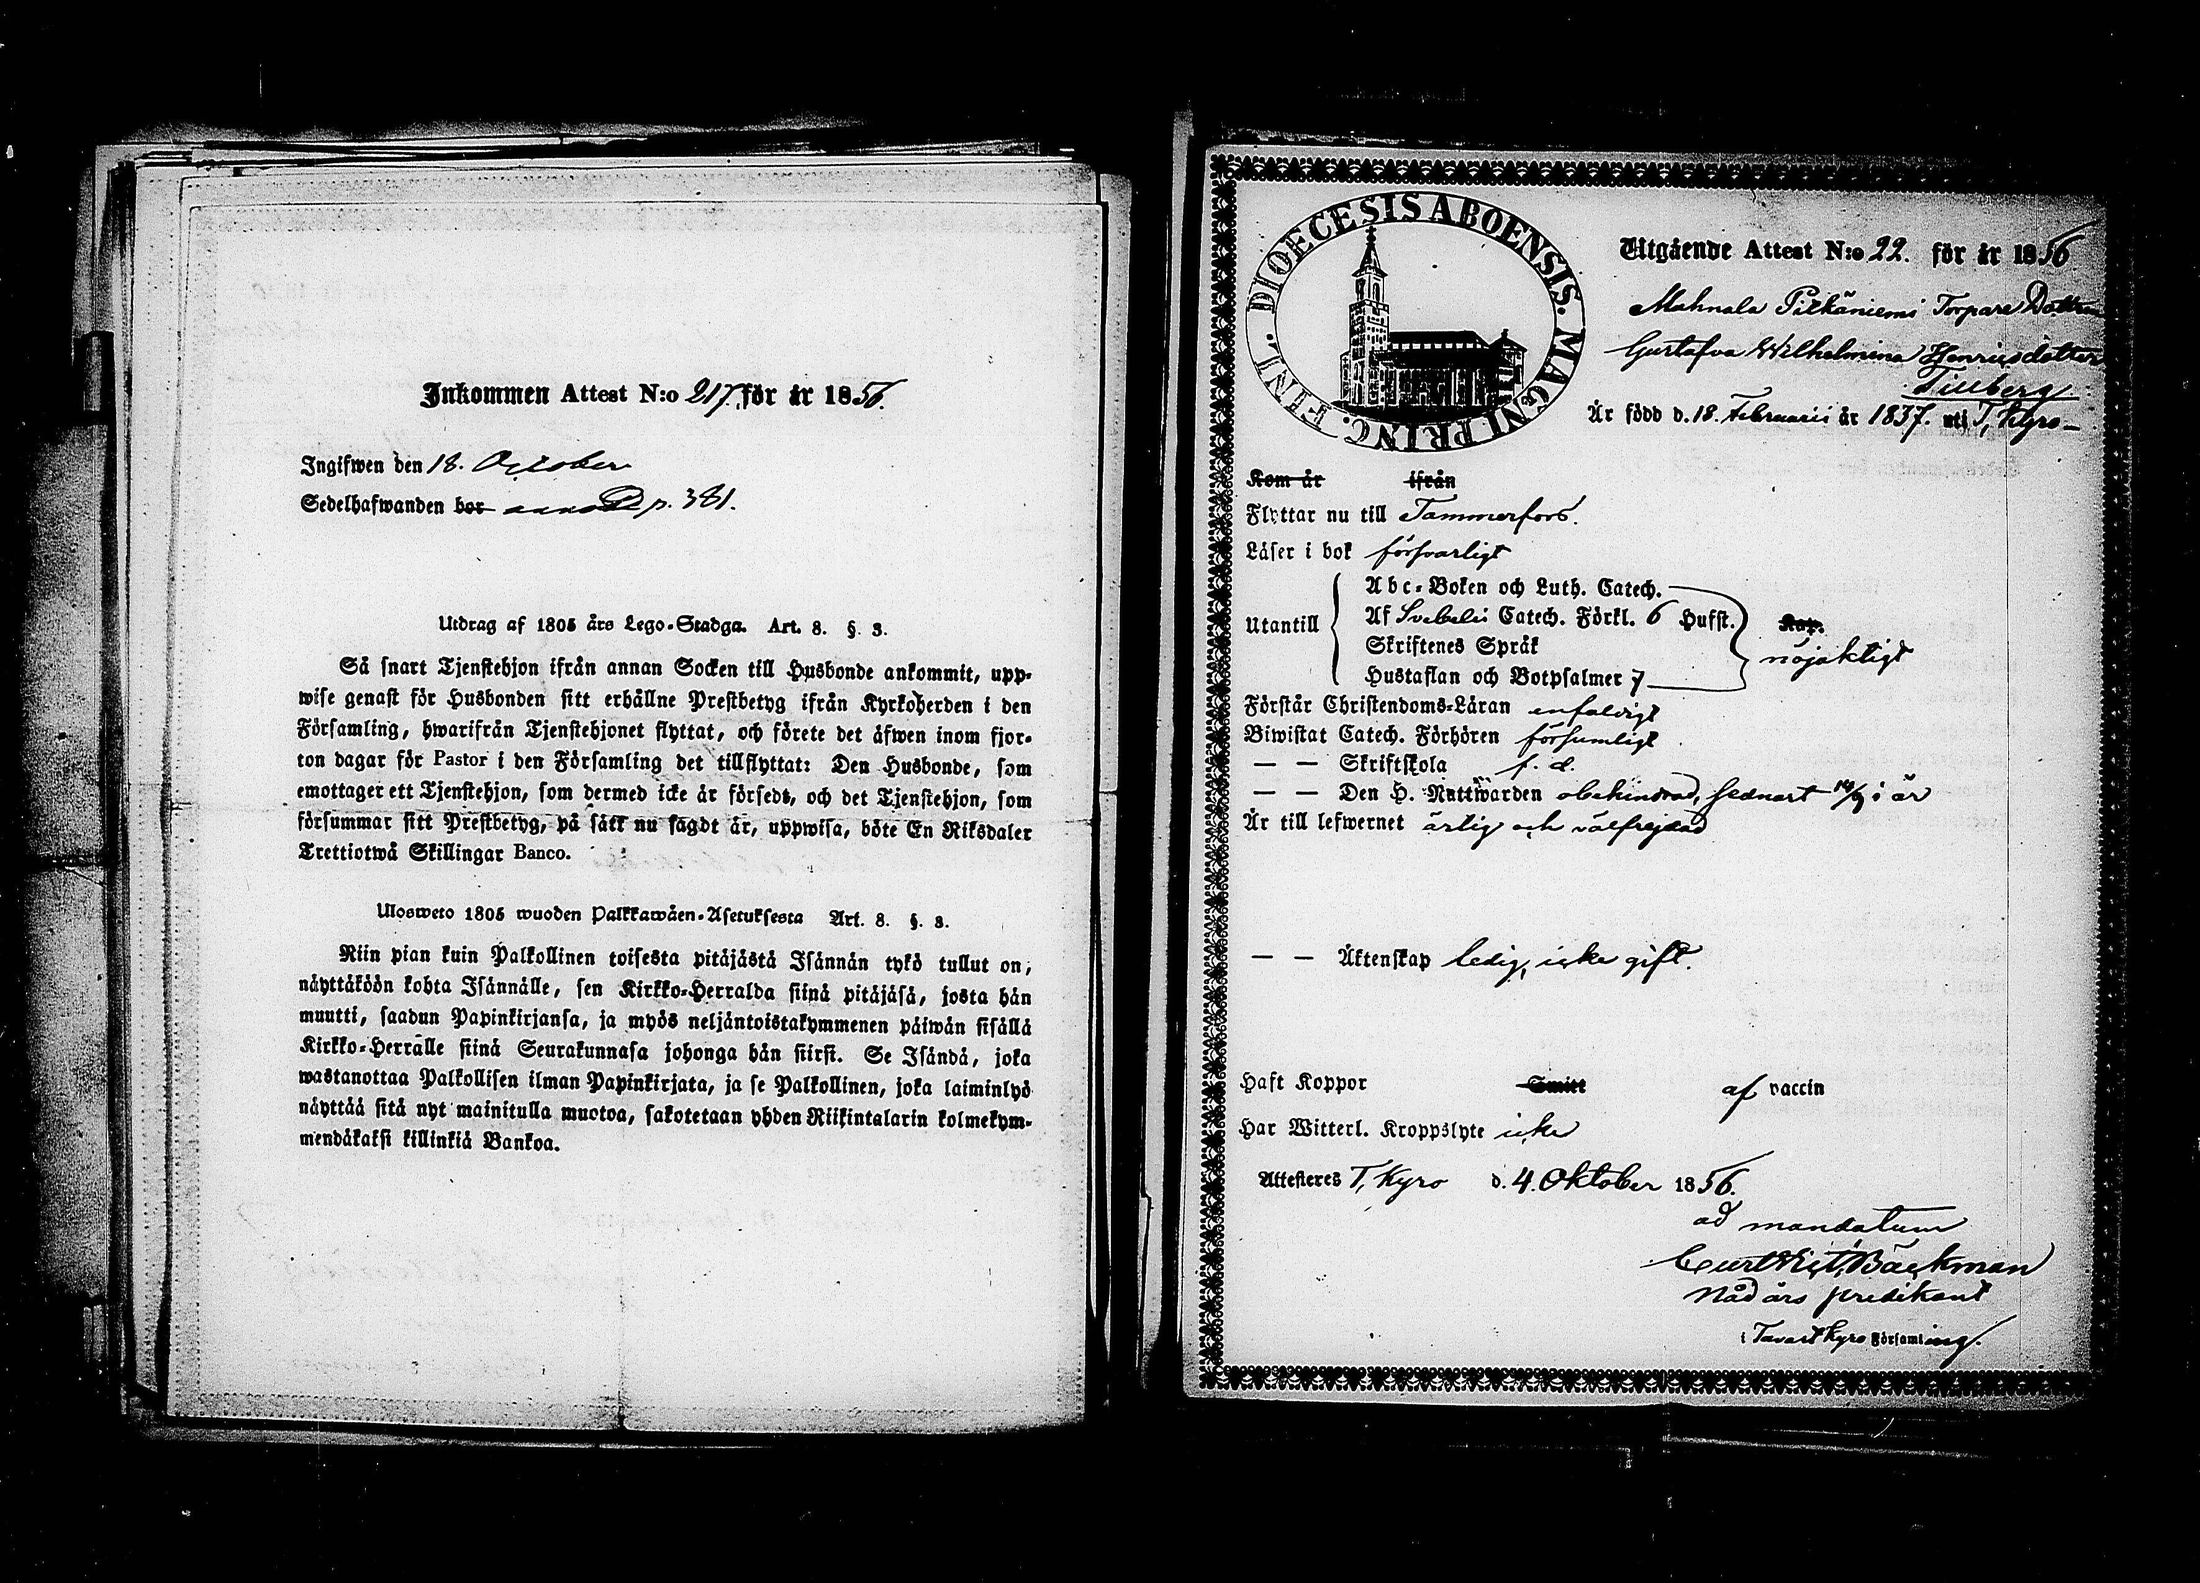 Inkommen Attest N:o 217. för år 1856.
Ingifwen den 18. October
Sedelhafwanden bor p. 381.
Utdrag af 1805 års Lego-Stadga. Art. 8. §. 3.
Så snart Tjenstehjon ifrån annan Socken till Husbonde ankommit, upp-
wise genast för Husbonden sitt erhållne Prestbetyg ifrån Kyrkoherden i den
Församling, hwarifrån Tjenstehjonet flyttat, och förete det äfwen inom fjor-
ton dagar för Pastor i den Församling det tillflyttat: Den Husbonde, som
emottager ett Tjenstehjon, som dermed icke är försedt, och det Tjenstehjon, som
försummar sitt Prestbetyg, på sätt nu sagdt är, uppwisa, böte En Riksdaler
Trettiotwå Skillingar Banco.
Ulosweto 1805 wuoden Palkkawäen-Asetuksesta Art. 8. §. 3.
Niin pian kuin Palkollinen toisesta pitäjästä Isännän tykö tullut on,
näyttäköön kohta Isännälle, sen Kirkko-Herralda siinä pitäjäsä, josta hän
muutti, saadun Papinkirjansa, ja myös neljäntoistakymmenen päiwän sisällä
Kirkko-Herralle siinä Seurakunnasa johonga hän siirsi. Se Isändä, joka
wastanottaa Palkollisen ilman Papinkirjata, ja se Palkollinen, joka laiminlyö
näyttää sitä nyt mainitulla muotoa, sakotetaan yhden Riikintalarin kolmekym-
mendäkaksi killinkiä Bankoa.
DIOECESIS ABOENSIS. MAGNI PRINC. FINL.
Utgående Attest N:o 22. för år 1856
Mahnala Pitkäniemi Torpare Dottren
Gustafva Wilhelmina Henricsdotter
Tillberg
Är född d. 18. Februarii år 1837. uti T, Kyro
Kom år ifrån
Flyttar nu till Tammerfors.
Läser i bok försvarligt
Abc-Boken och Luth. Catech.
Utantill Af Svebelii Catech. Förkl. 6 Hufst. Kap.
Skriftenes Språk nöjaktigt
Hustaflan och Botpsalmer 7
Förstår Christendoms-Läran enfaldigt
Biwistat Catech. Förhören försumligt
— — Skriftskola f. d.
— — Den H. Nattwarden obehindrad, sednast 14/9 i år
Är till lefwernet ärlig och välfrejdad
— — Äktenskap ledig, icke gift.
Haft Koppor Smitt af vaccin
Har Witterl. Kroppslyte icke
Attesteres T, Kyro d. 4. Oktober 1856.
ad mandatum
Curt Vict, Bäckman
Nådårs predikant
i Tavastkyro Församling.